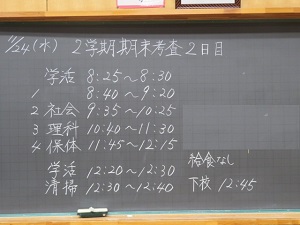 11/24(水) 2学期期末考査2日目
学活 8:25～8:30
1 8:40～9:20
2 社会 9:35～10:25
3 理科 10:40～11:30
4 保体 11:45～12:15
学活 12:20～12:30 給食なし
清掃 12:30～12:40 下校 12:45